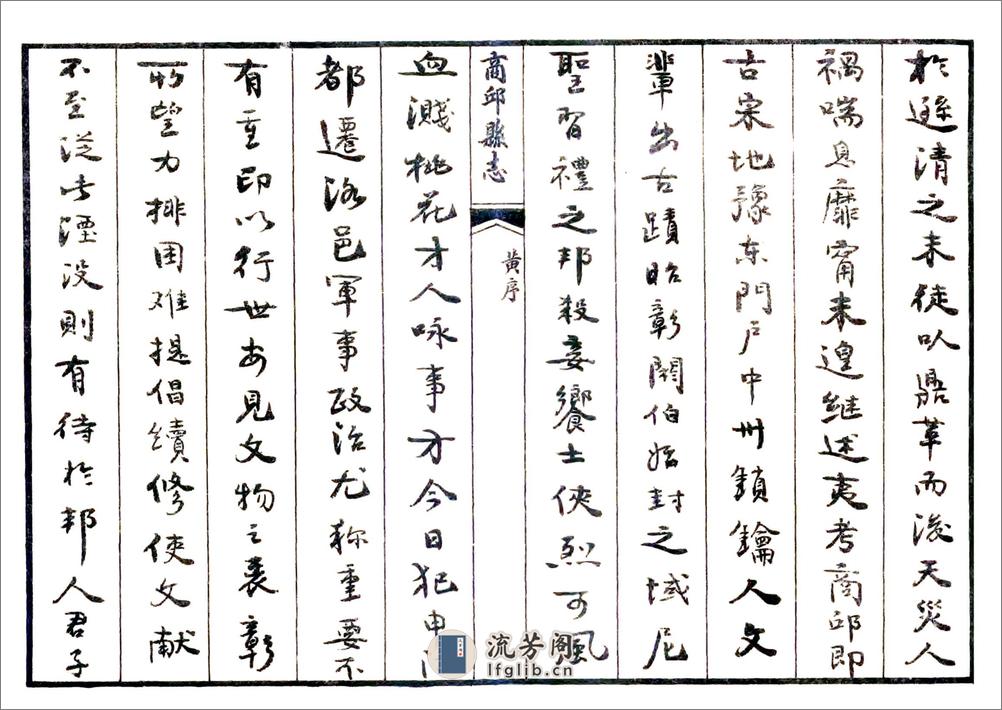 於遜清之末徒以鼎革而後天災人
禍喘息靡甯未遑繼述夷考商邱即
古宋地豫东門户中州鎖鑰人文
輩出古蹟昭彰閼伯始封之域尼
聖習禮之邦殺妾饗士俠烈可風
商邱縣志
黃序
血濺桃花才人咏事方今日犯申
都遷洛邑軍事政治尤称重要不
有重印以行世安見文物之表彰
所望力排困难提倡續修使文献
不至从此湮没則有待於邦人君子
流芳阁
lfglib.cn